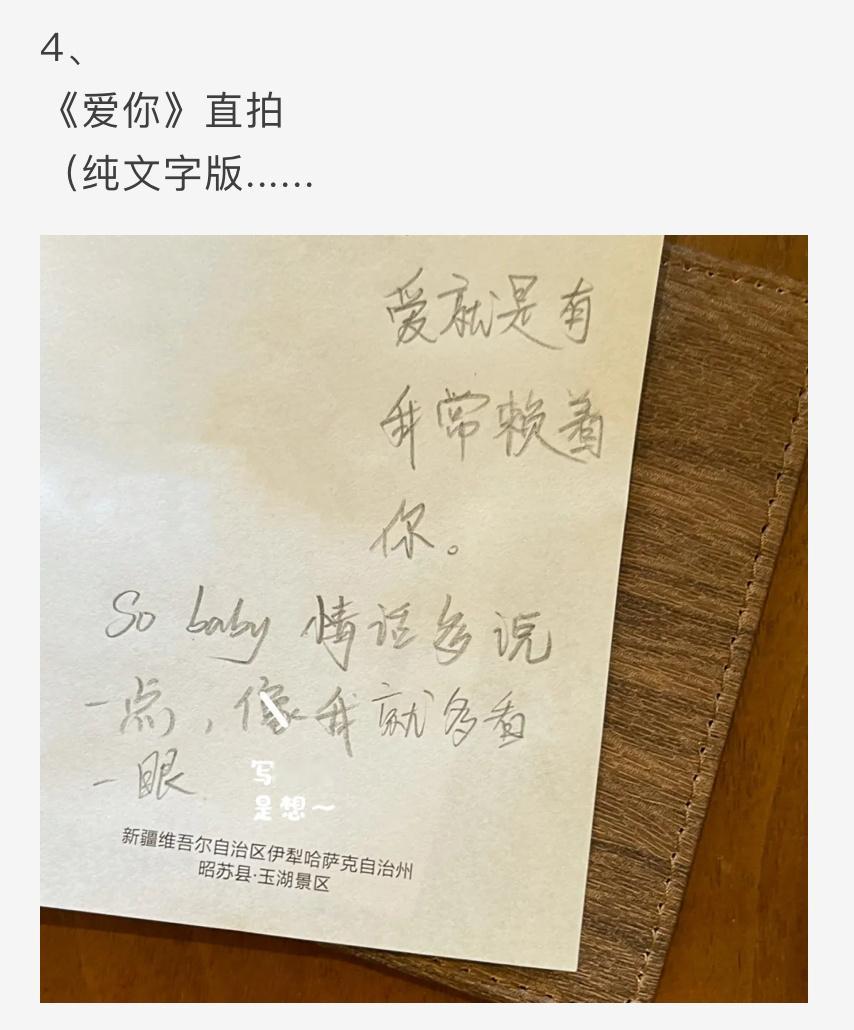 4、
《爱你》直拍
（纯文字版……
爱就是有
我常赖着
你。
So baby 情话多说
一点，像我就多看
一眼
写
是想～
新疆维吾尔自治区伊犁哈萨克自治州
昭苏县·玉湖景区